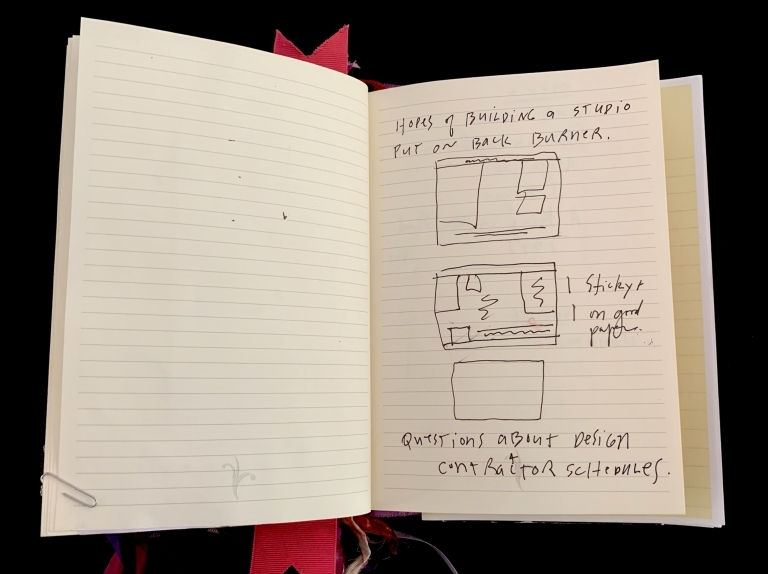 HOPES of BUILDING a STUDIO
PUT ON BACK BURNER.
1 Sticky +
1 on good
paper.
QUESTIONS ABOUT DESIGN
+
CONTRACTOR SCHEDULES.